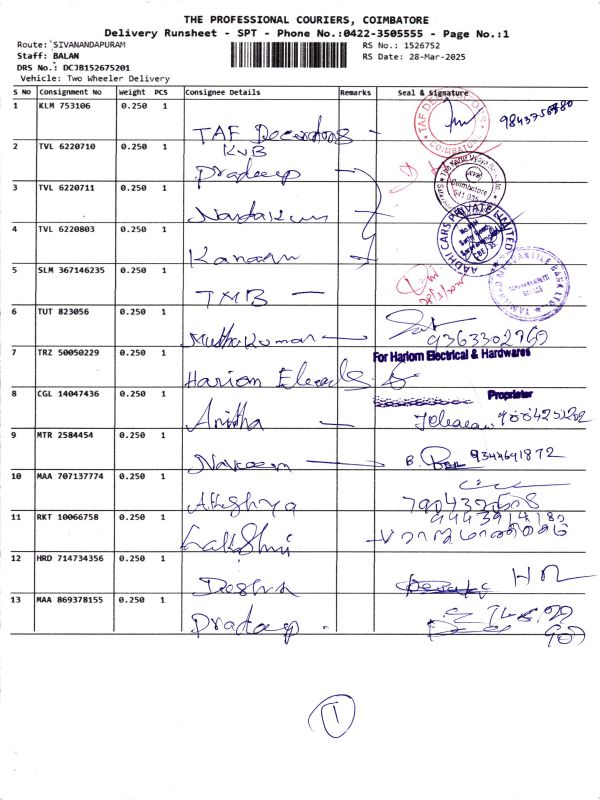 THE PROFESSIONAL COURIERS, COIMBATORE
Delivery Runsheet - SPT - Phone No.:0422-3505555 - Page No.:1
Route: SIVANANDAPURAM
RS No.: 1526752
Staff: BALAN
RS Date: 28-Mar-2025
DRS No.: DCJB152675201
Vehicle: Two Wheeler Delivery
S No Consignment No Weight PCS Consignee Details Remarks Seal & Signature
1 KLM 753106 0.250 1
TAF
COIMBATORE
2 TVL 6220710 0.250 1
KVB
Pradeep
The Karur Vysya Bank
Coimbatore
641 035
3 TVL 6220711 0.250 1
Nandakum
AADHI CARS PRIVATE LIMITED
CBE 35
4 TVL 6220803 0.250 1
Kannan
5 SLM 367146235 0.250 1
TMB
TAMILNAD MERCANTILE BANK LTD.
6 TUT 823056 0.250 1
Muthukumar
7 TRZ 50050229 0.250 1
For Hariom Electrical & Hardwares
Hariom
8 CGL 14047436 0.250 1
Proprietor
Anitha
9 MTR 2584454 0.250 1
Naveen
9344641872
10 MAA 707137774 0.250 1
Akshya
11 RKT 10066758 0.250 1
Lakshmi
12 HRD 714734356 0.250 1
13 MAA 869378155 0.250 1
Pradeep
1